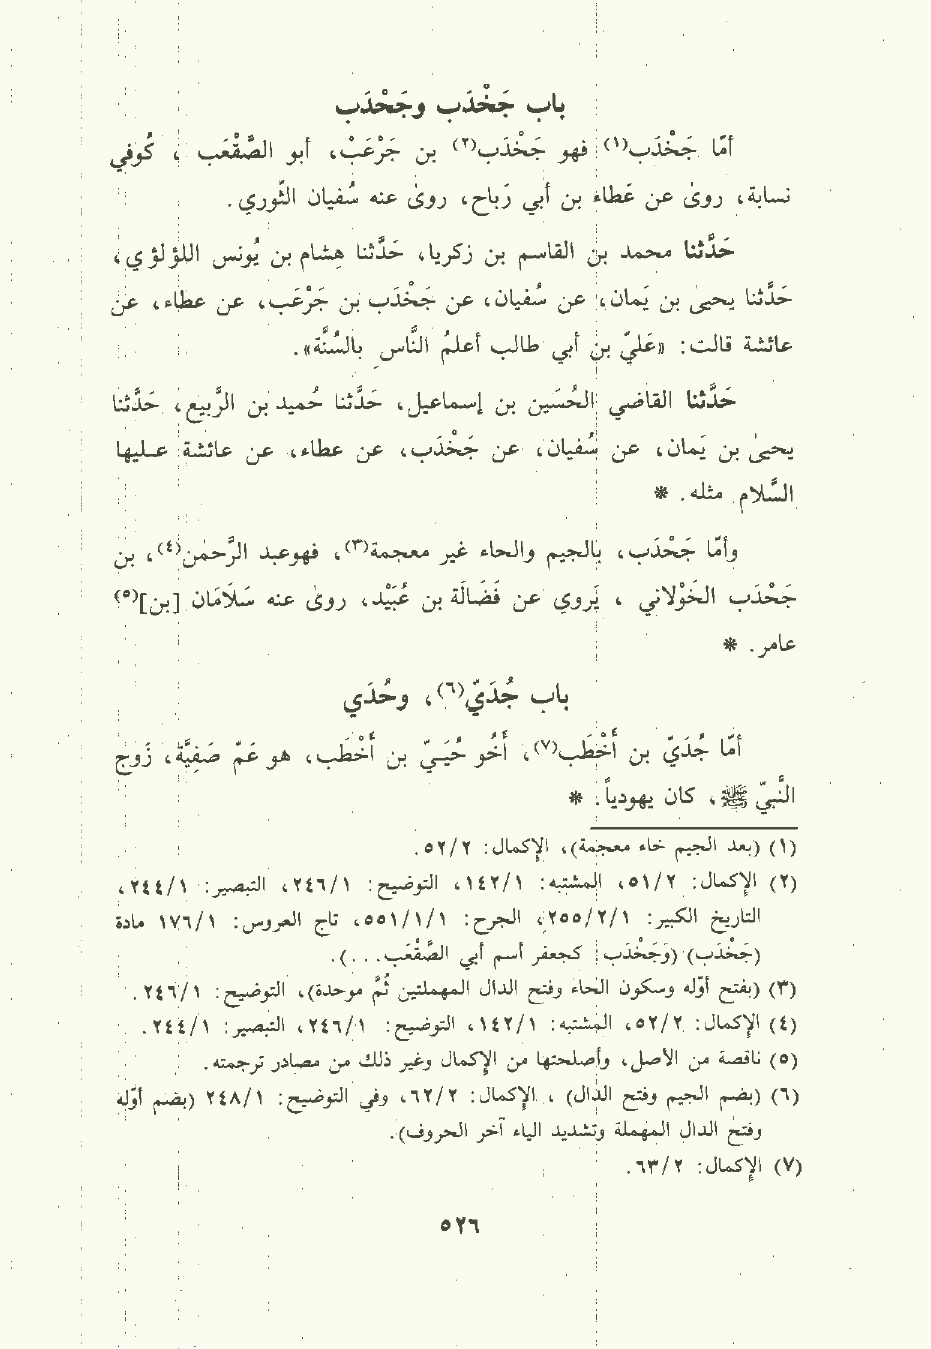 باب جَخْدَب وجَحْدَب
أمّا جَخْدَب(١) فهو جَخْدَب(٢) بن جَرْعَبْ، أبو الصَّقْعَب ، كُوفي
نسابة، روىٰ عن عَطاء بن أبي رَباح، روىٰ عنه سُفيان الثّوري.
حَدَّثنا محمد بن القاسم بن زكريا، حَدَّثنا هِشام بن يُونس اللؤلؤي،
حَدَّثنا يحيىٰ بن يَمان، عن سُفيان، عن جَخْدَب بن جَرْعَب، عن عطاء، عن
عائشة قالت: «عَليّ بن أبي طالب أعلمُ النَّاس بالسُنَّة».
حَدَّثنا القاضي الحُسَين بن إسماعيل، حَدَّثنا حُميد بن الرَّبيع، حَدَّثنا
يحيىٰ بن يَمان، عن سُفيان، عن جَخْدَب، عن عطاء، عن عائشة عليها
السَّلام مثله. *
وأمّا جَحْدَب، بالجيم والحاء غير معجمة(٣)، فهوعبد الرَّحمٰن(٤)، بن
جَحْدَب الخَوْلاني ، يَروي عن فَضَالَة بن عُبَيْد، روىٰ عنه سَلَامَان [بن](٥)
عامر. *
باب جُدَيّ(٦)، وحُدَي
أمّا جُدَيّ بن أَخْطَب(٧)، أَخُو حُيَـيّ بن أَخْطَب، هو عَمّ صَفِيَّة، زَوج
النَّبيّ ﷺ، كان يهودياً. *
(١) (بعد الجيم خاء معجمة)، الإكمال: ٥٢/٢.
(٢) الإكمال: ٥١/٢، المشتبه: ١٤٢/١، التوضيح: ٢٤٦/١، التبصير: ٢٤٤/١،
التاريخ الكبير: ٢٥٥/٢/١، الجرح: ٥٥١/١/١، تاج العروس: ١٧٦/١ مادة
(جَخْدَب) (وَجَخْدَب: كجعفر أسم أبي الصَّقْعَب...).
(٣) (بفتح أوّله وسكون الحاء وفتح الدال المهملتين ثُمَّ موحدة)، التوضيح: ٢٤٦/١.
(٤) الإكمال: ٥٢/٢، المشتبه: ١٤٢/١، التوضيح: ٢٤٦/١، التبصير: ٢٤٤/١.
(٥) ناقصة من الأصل، وأصلحتها من الإكمال وغير ذلك من مصادر ترجمته.
(٦) (بضم الجيم وفتح الدال) ، الإكمال: ٦٢/٢، وفي التوضيح: ٢٤٨/١ (بضم أوّله
وفتح الدال المهملة وتشديد الياء آخر الحروف).
(٧) الإكمال: ٦٣/٢.
٥٢٦